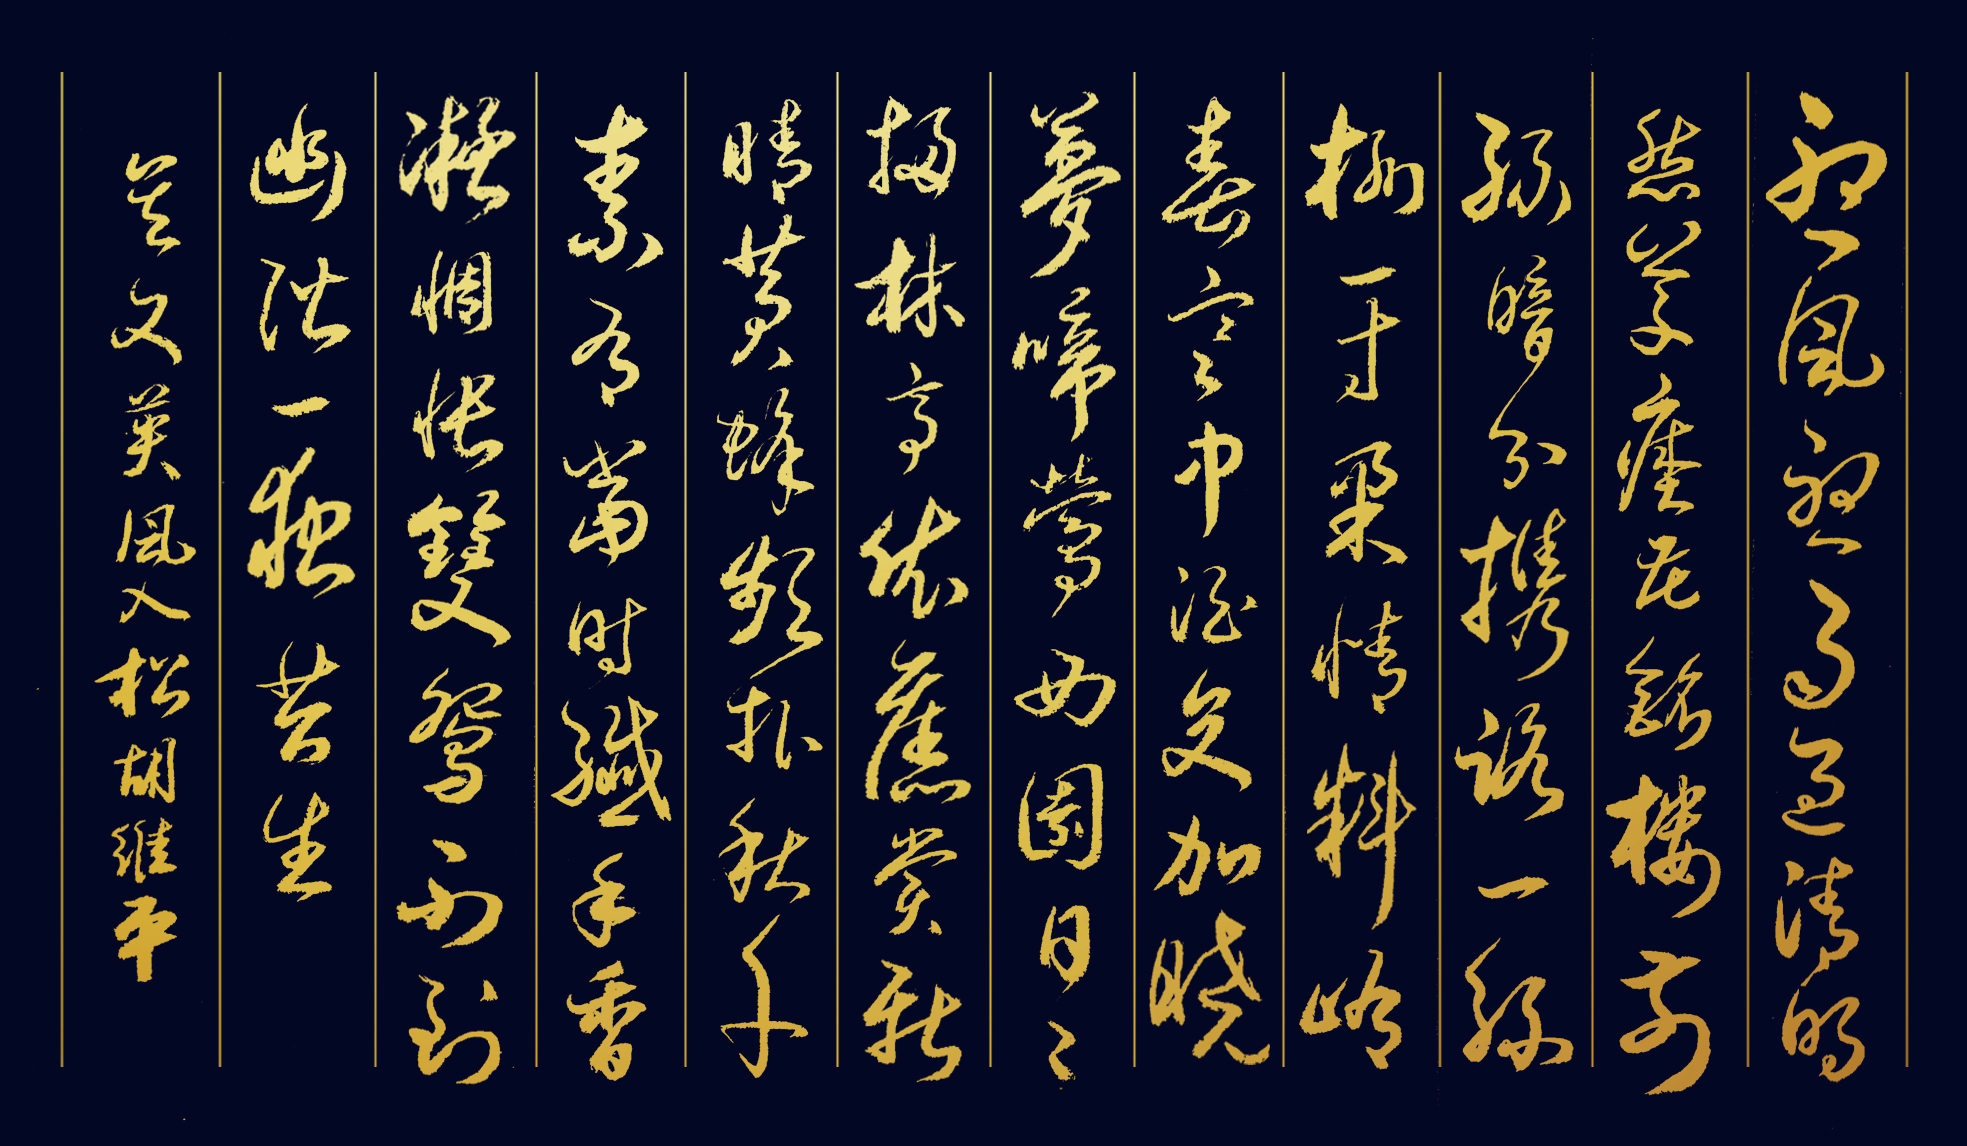 聽風聽雨過清明
愁草瘞花銘樓前
綠暗分攜路一絲
柳一寸柔情料峭
春寒中酒交加曉
夢啼鶯西園日々
掃林亭依舊賞新
晴黃蜂頻撲秋千
索有當時纖手香
凝惆悵雙鴛不到
幽階一夜苔生
吳文英風入松胡維平